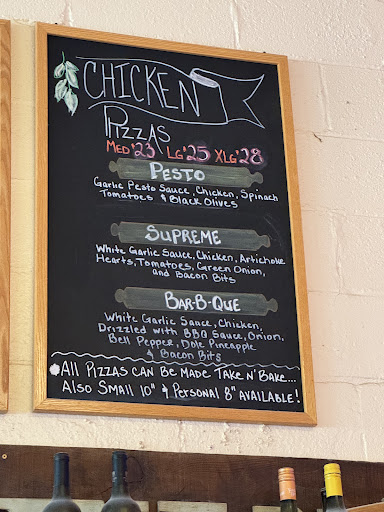 CHICKEN
PIZZAS
MED $23 LG $25 XLG $28
PESTO
Garlic Pesto Sauce, Chicken, Spinach
Tomatoes & Black Olives
SUPREME
White Garlic Sauce, Chicken, Artichoke
Hearts, Tomatoes, Green Onion,
and Bacon Bits
BAR-B-QUE
White Garlic Sauce, Chicken,
Drizzled with BBQ Sauce, Onion,
Bell Pepper, Dole Pineapple
& Bacon Bits
All Pizzas can be made Take N' Bake...
Also Small 10" & Personal 8" available!